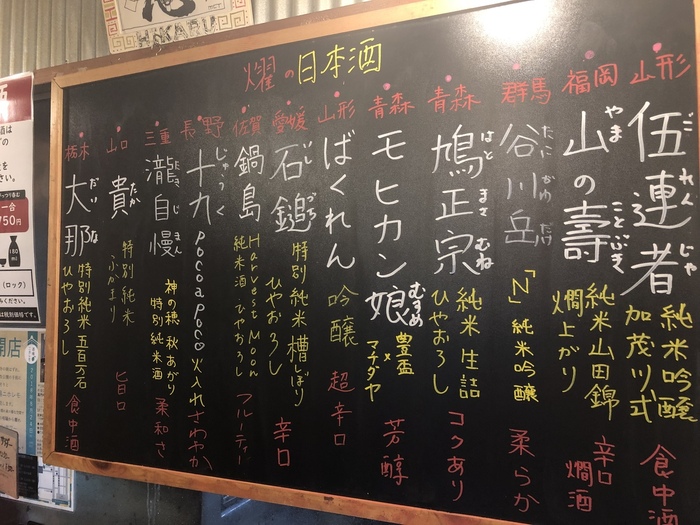 HIKARU
燿の日本酒
山形
伍連者
ごれんじゃ
純米吟醸
加茂川式
食中酒
福岡
山の壽
やま
ことぶき
純米山田錦
燗上がり
辛口
燗酒
群馬
谷川岳
たにがわだけ
「N」純米吟醸
柔らか
青森
鳩正宗
はとまさむね
純米生詰
ひやおろし
コクあり
青森
モヒカン娘
むすめ
豊盃
×
マチダヤ
芳醇
山形
ばくれん
吟醸
超辛口
愛媛
石鎚
いしづち
特別純米 槽しぼり
ひやおろし
辛口
佐賀
鍋島
Harvest Moon
純米酒 ひやおろし
フルーティー
長野
十九
じゅうく
pocoapoco
火入れ
さわやか
三重
瀧自慢
たきじまん
神の穂 秋あがり
特別純米酒
柔和さ
山口
貴
たか
特別純米
ふかまり
旨口
栃木
大那
だいな
特別純米 五百万石
ひやおろし
食中酒
一合
750円
(ロック)
開店